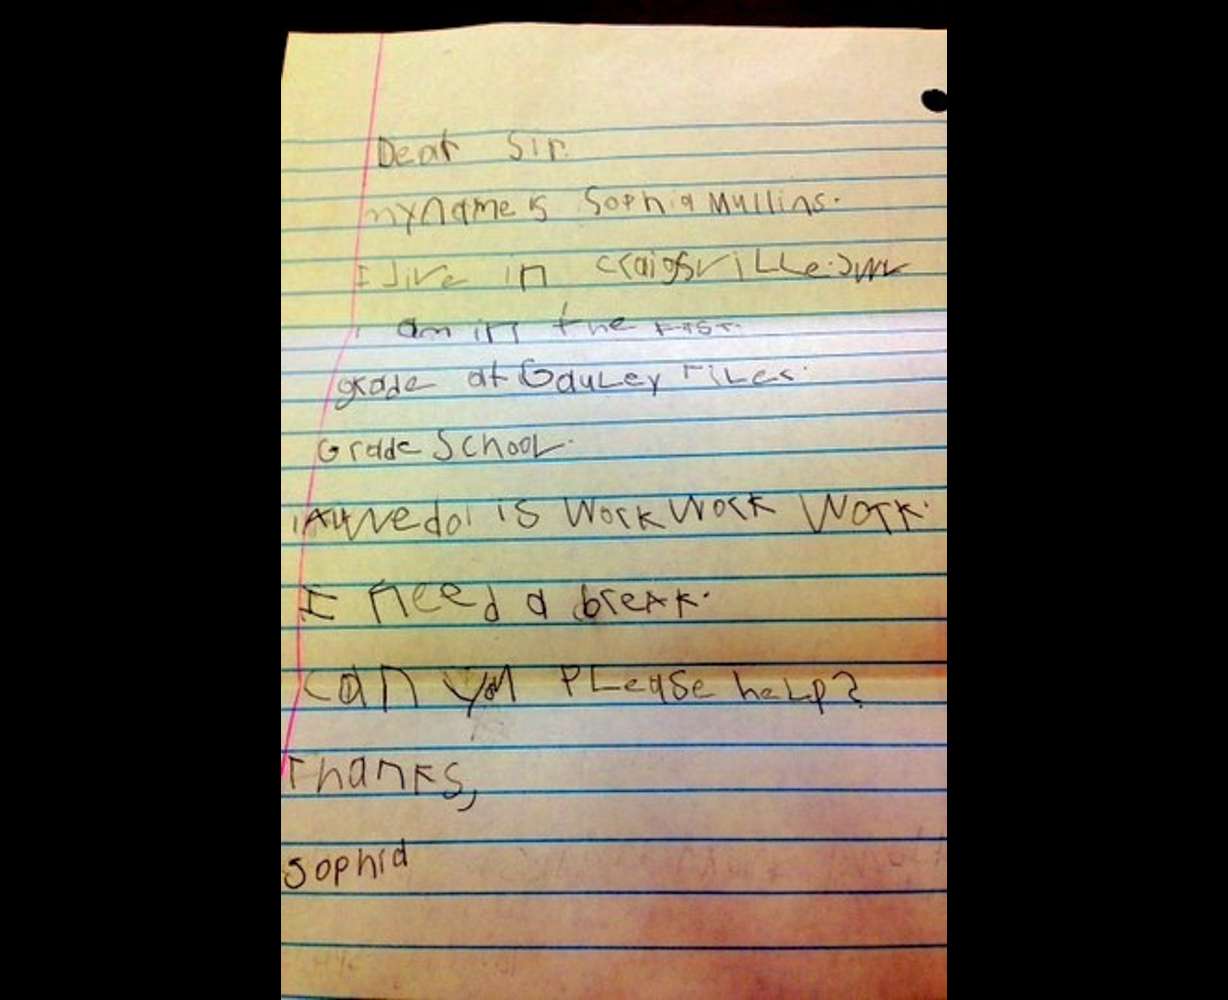 Dear Sir.
my name is Sophia Mullins.
I live in craigsville.
I am in the
grade at Gauley
Grade School.
is work work work.
I need a break.
can you please help?
Thanks,
Sophia